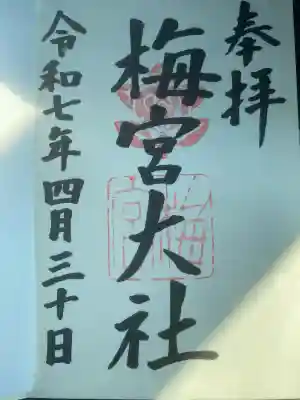 奉拝
梅宮大社
令和七年四月三十日